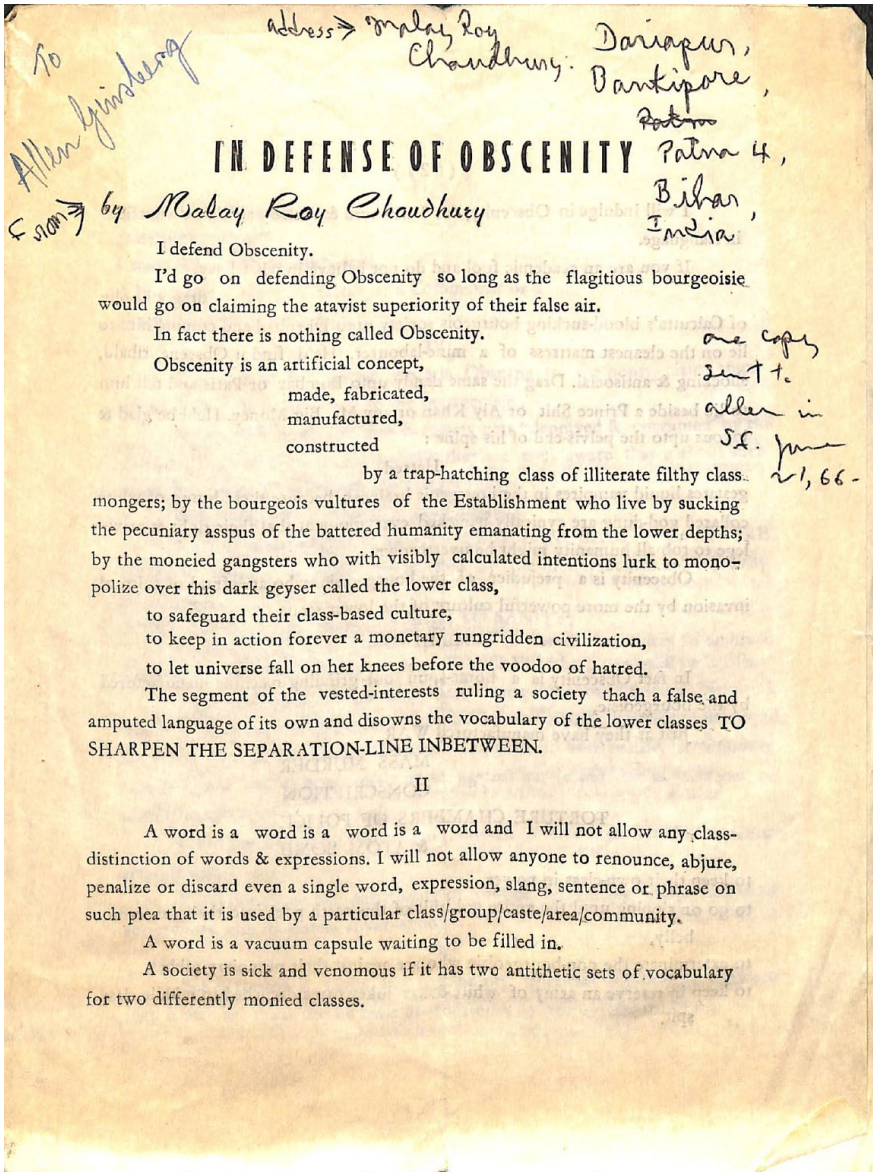 To
Allen Ginsberg
address => Malay Roy
Chaudhury:
Dariapur,
Bankipore,
Patna
Patna 4,
Bihar,
India
IN DEFENSE OF OBSCENITY
From => by Malay Roy Choudhury
I defend Obscenity.
I'd go on defending Obscenity so long as the flagitious bourgeoisie
would go on claiming the atavist superiority of their false air.
In fact there is nothing called Obscenity.
Obscenity is an artificial concept,
made, fabricated,
manufactured,
constructed
one copy
sent to
allen in
S.F. June
21, 66-
by a trap-hatching class of illiterate filthy class
mongers; by the bourgeois vultures of the Establishment who live by sucking
the pecuniary asspus of the battered humanity emanating from the lower depths;
by the moneied gangsters who with visibly calculated intentions lurk to mono-
polize over this dark geyser called the lower class,
to safeguard their class-based culture,
to keep in action forever a monetary rungridden civilization,
to let universe fall on her knees before the voodoo of hatred.
The segment of the vested-interests ruling a society thach a false and
amputed language of its own and disowns the vocabulary of the lower classes TO
SHARPEN THE SEPARATION-LINE INBETWEEN.
II
A word is a word is a word is a word and I will not allow any class-
distinction of words & expressions. I will not allow anyone to renounce, abjure,
penalize or discard even a single word, expression, slang, sentence or phrase on
such plea that it is used by a particular class/group/caste/area/community.
A word is a vacuum capsule waiting to be filled in.
A society is sick and venomous if it has two antithetic sets of vocabulary
for two differently monied classes.